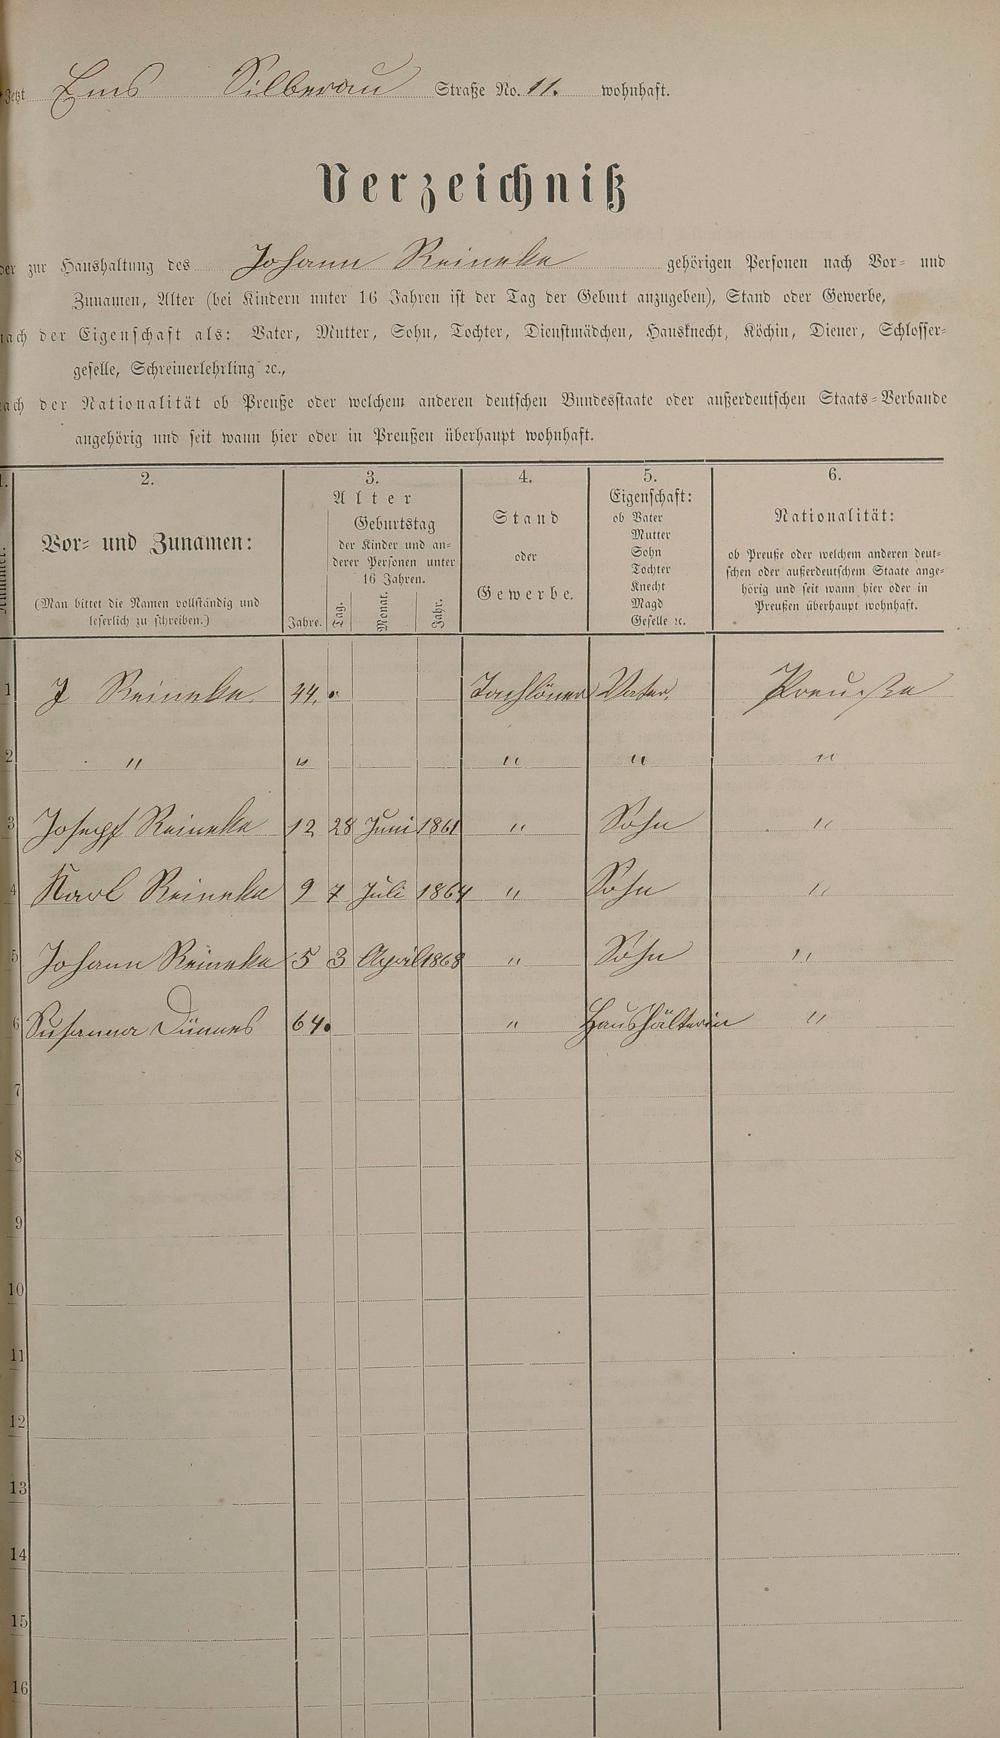 Jetzt Ems Silberau Straße No. 11. wohnhaft.
Verzeichniß
der zur Haushaltung des Johann Reineke gehörigen Personen nach Vor- und
Zunamen, Alter (bei Kindern unter 16 Jahren ist der Tag der Geburt anzugeben), Stand oder Gewerbe,
nach der Eigenschaft als: Vater, Mutter, Sohn, Tochter, Dienstmädchen, Hausknecht, Köchin, Diener, Schlosser-
geselle, Schreinerlehrling ꝛc.,
nach der Nationalität ob Preuße oder welchem anderen deutschen Bundesstaate oder außerdeutschen Staats-Verbande
angehörig und seit wann hier oder in Preußen überhaupt wohnhaft.
1. 2. 3. 4. 5. 6.
Nummer.
Vor- und Zunamen:
(Man bittet die Namen vollständig und
leserlich zu schreiben.)
Alter
Jahre.
Geburtstag
der Kinder und an-
derer Personen unter
16 Jahren.
Tag. Monat. Jahr.
Stand
oder
Gewerbe.
Eigenschaft:
ob Vater
Mutter
Sohn
Tochter
Knecht
Magd
Geselle ꝛc.
Nationalität:
ob Preuße oder welchem anderen deut-
schen oder außerdeutschem Staate ange-
hörig und seit wann hier oder in
Preußen überhaupt wohnhaft.
1 J Reineke. 44. Taglöner Vater. Preuße
2 " " " " "
3 Joseph Reineke 12 28 Juni 1861 " Sohn "
4 Karl Reineke 9 7 Juli 1864 " Sohn "
5 Johann Reineke 5 3 April 1868 " Sohn "
6 Susanna 64. " Haushälterin "
7
8
9
10
11
12
13
14
15
16